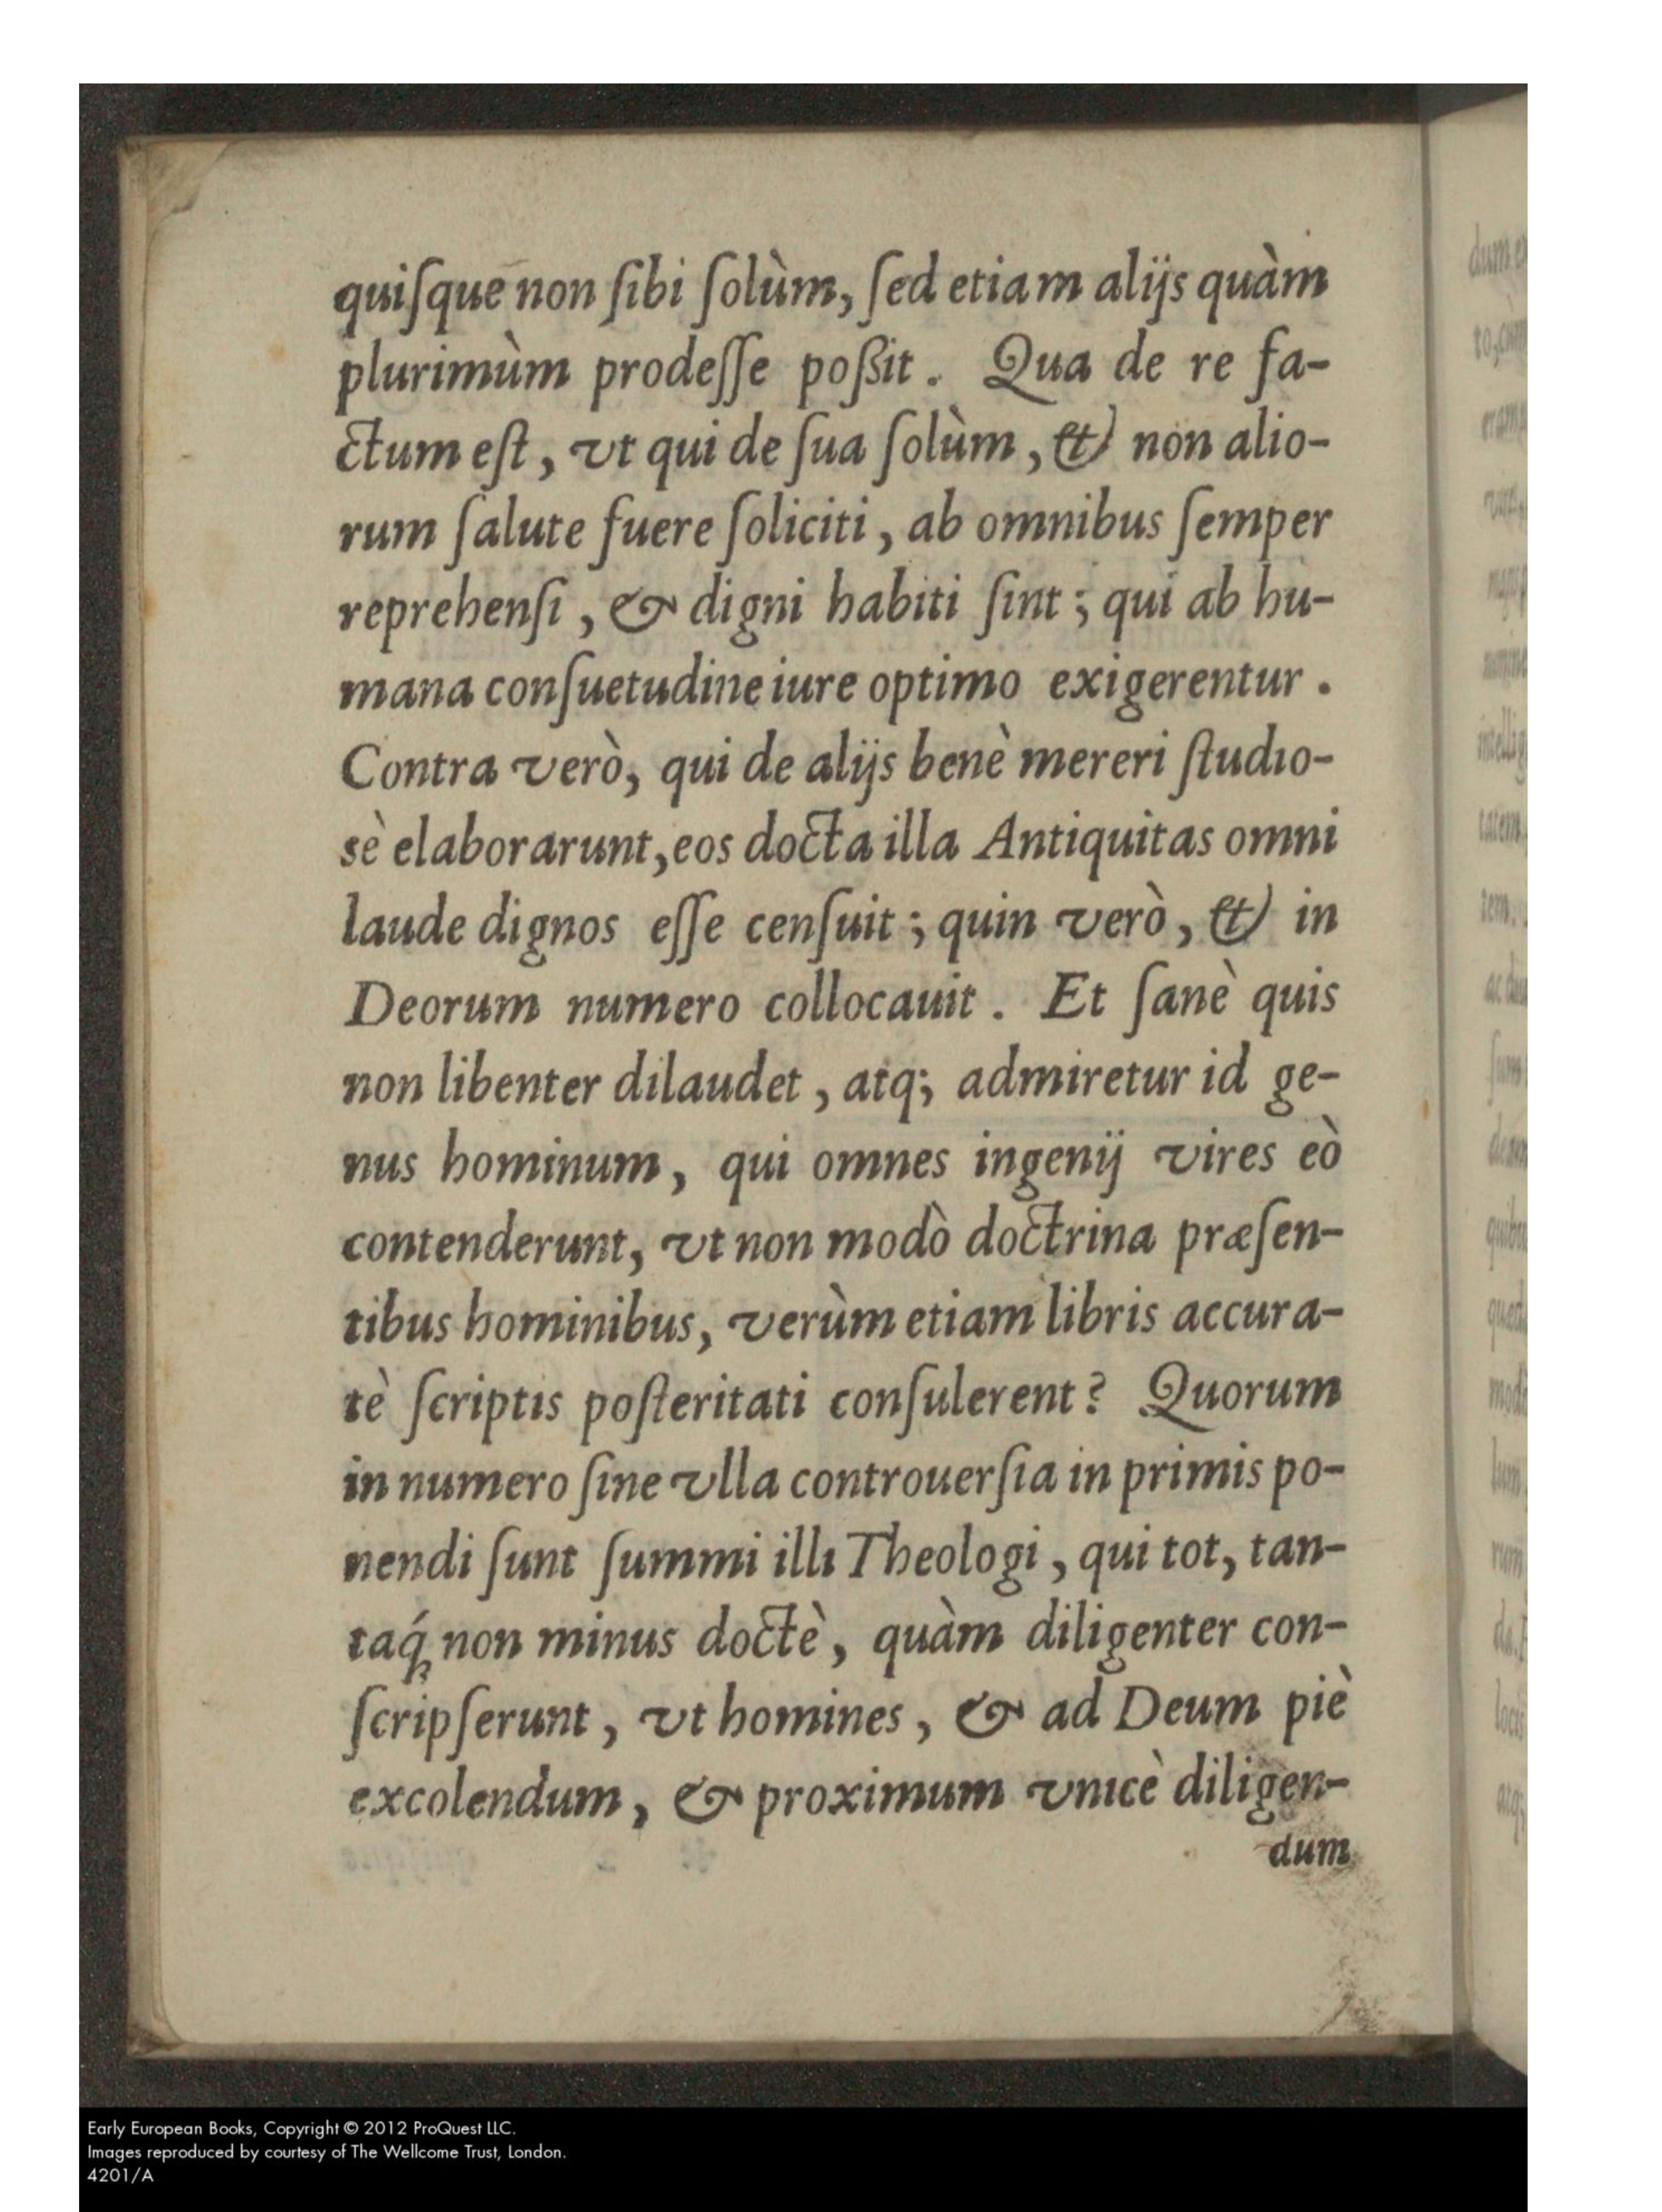 quiſque non ſibi ſolùm, ſed etiam alijs quàm
plurimùm prodeſſe poßit. Qua de re fa-
ctum eſt, vt qui de ſua ſolùm, & non alio-
rum ſalute fuere ſoliciti, ab omnibus ſemper
reprehenſi, & digni habiti ſint; qui ab hu-
mana conſuetudine iure optimo exigerentur.
Contra verò, qui de alijs benè mereri ſtudio-
sè elaborarunt, eos docta illa Antiquitas omni
laude dignos eſſe cenſuit; quin verò, & in
Deorum numero collocauit. Et ſanè quis
non libenter dilaudet, atq; admiretur id ge-
nus hominum, qui omnes ingenij vires eò
contenderunt, vt non modò doctrina præſen-
tibus hominibus, verùm etiam libris accura-
tè ſcriptis poſteritati conſulerent? Quorum
in numero ſine vlla controuerſia in primis po-
nendi ſunt ſummi illi Theologi, qui tot, tan-
taq́ꝫ non minus doctè, quàm diligenter con-
ſcripſerunt, vt homines, & ad Deum piè
excolendum, & proximum vnicè diligen-
dum
Early European Books, Copyright © 2012 ProQuest LLC.
Images reproduced by courtesy of The Wellcome Trust, London.
4201/A